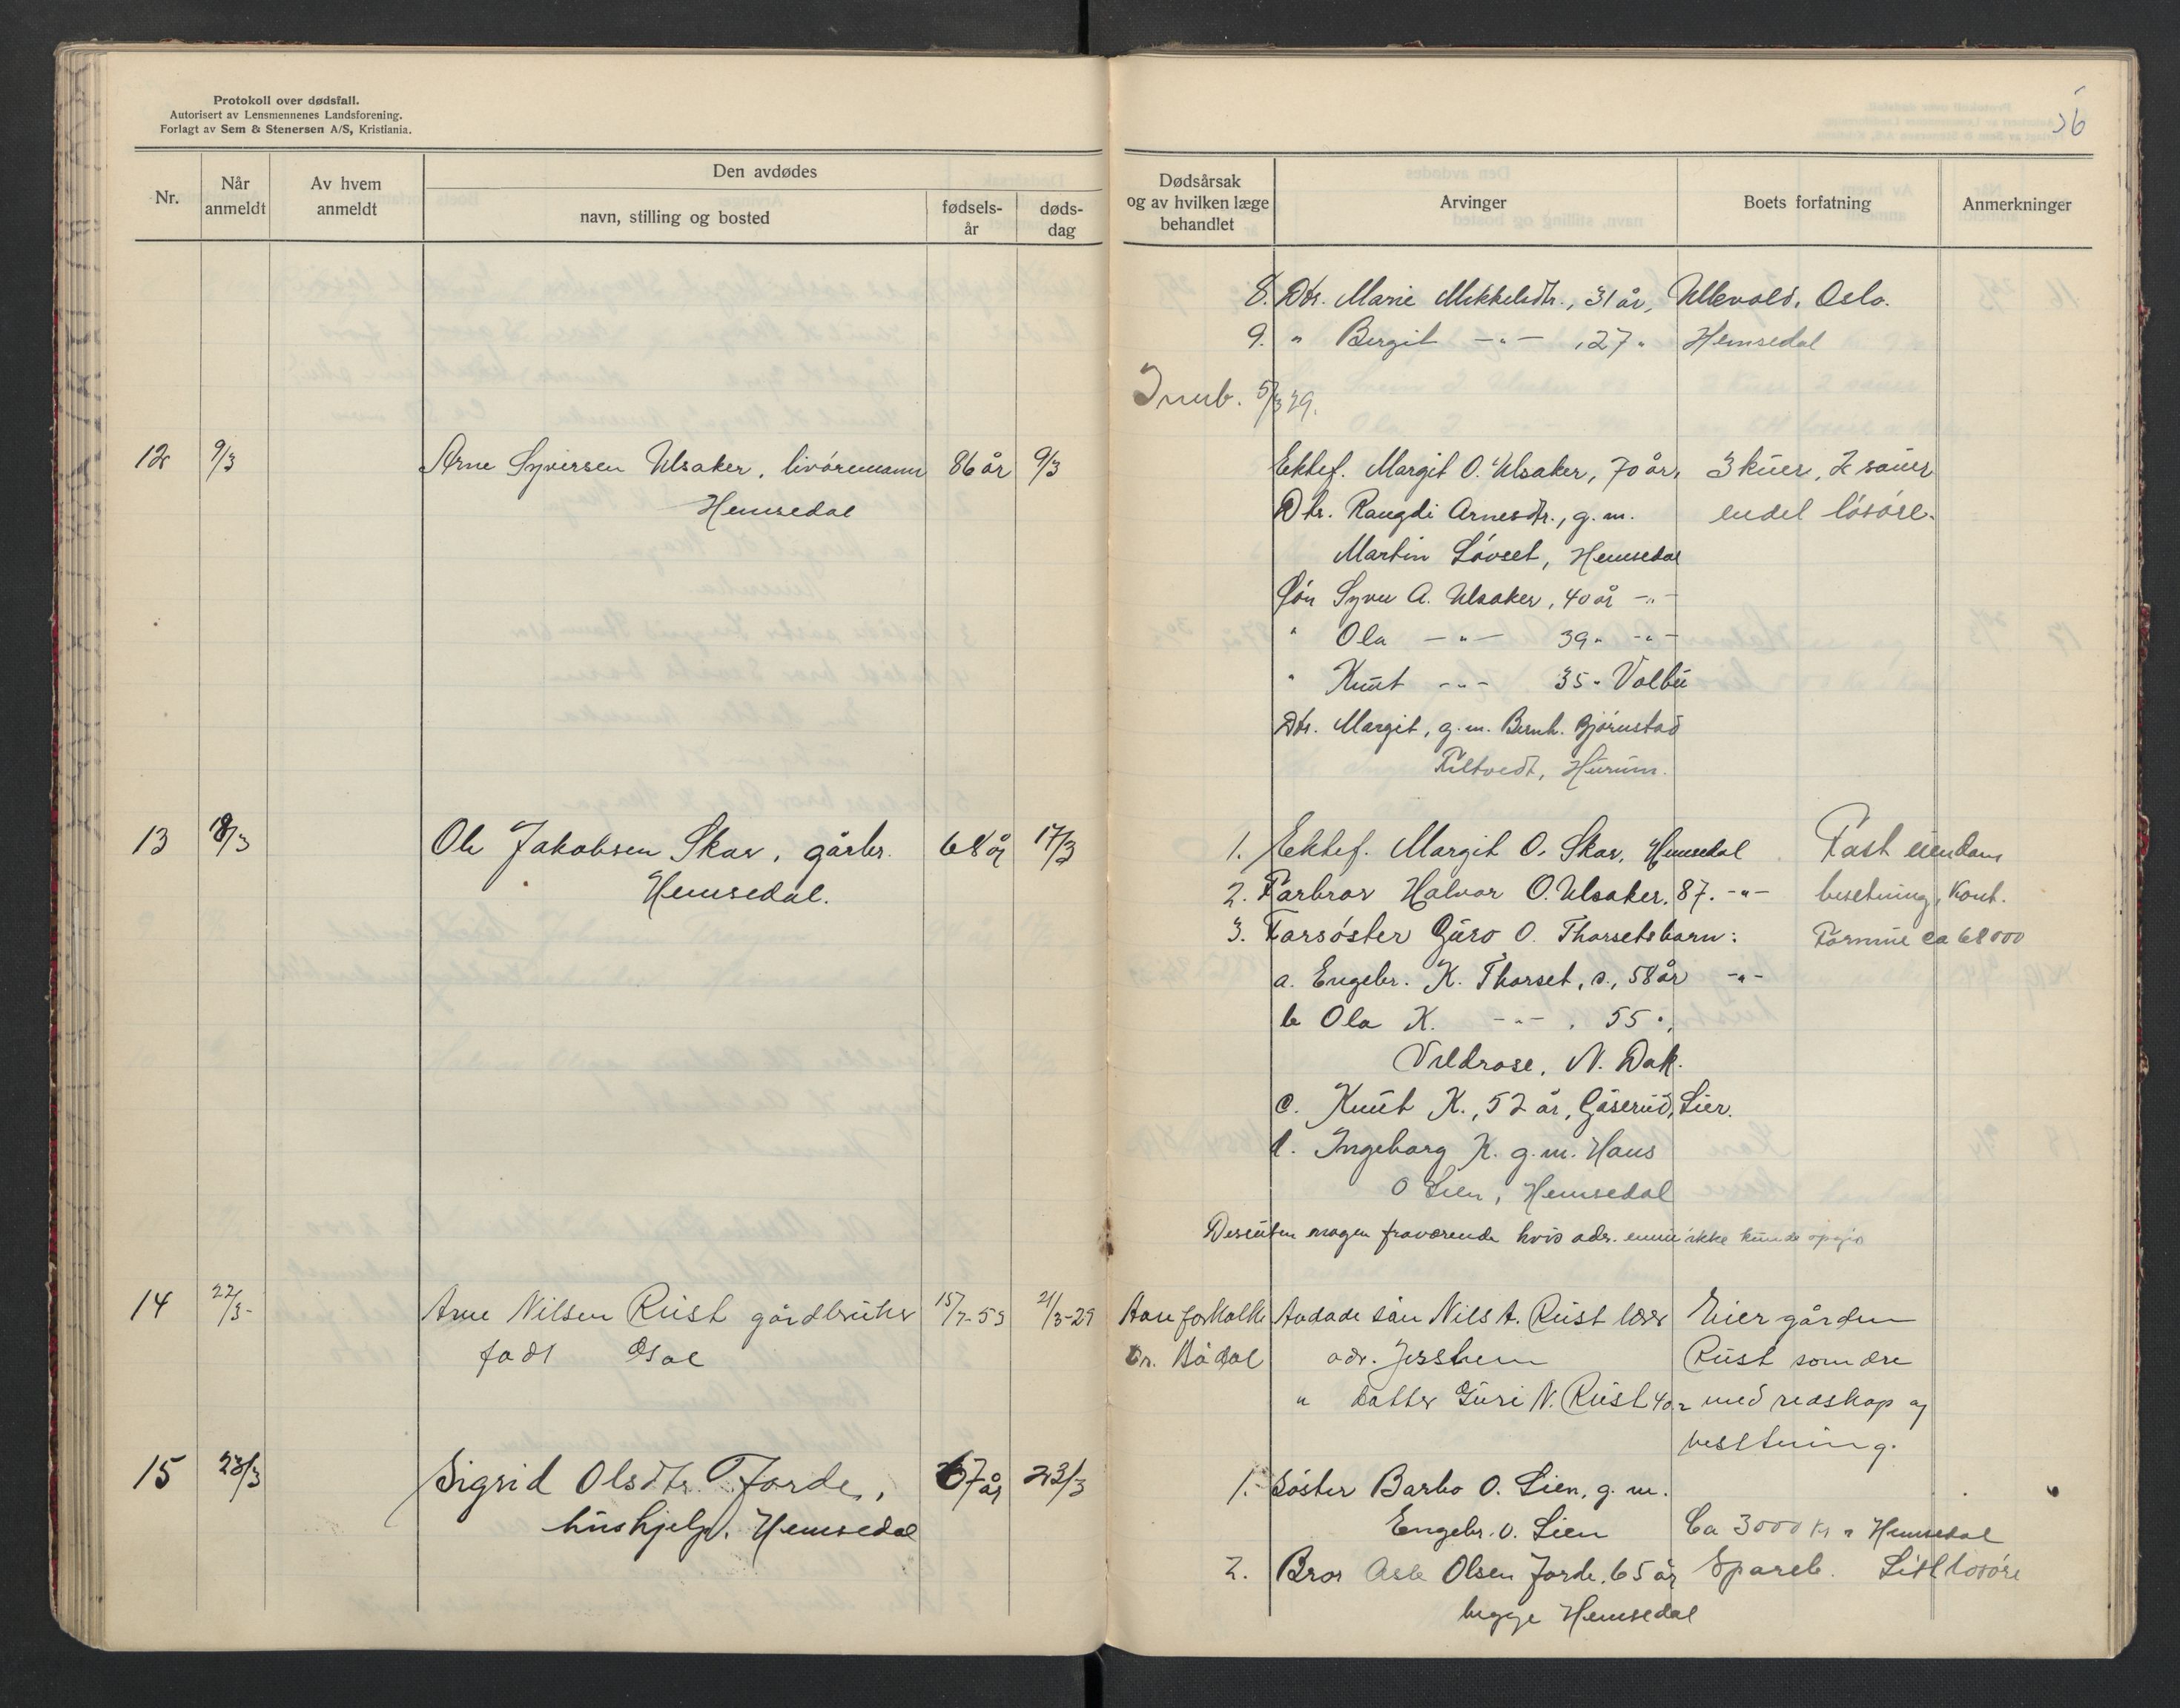 Protokoll over dødsfall.
Autorisert av Lensmennenes Landsforening.
Forlagt av Sem & Stenersen A/S, Kristiania.
Nr.
Når anmeldt
Av hvem anmeldt
Den avdødes
navn, stilling og bosted
fødsels-år
døds-dag
12 9/3 Arne Syversen Ulsaker, livöremann 86 år 9/3
Hemsedal
13 18/3 Ole Jakobsen Skar, gårbr. 68 år 17/3
Hemsedal.
14 22/3- Arne Nilsen Rust gårdbruker 15/7-53 21/3-29
födt Gol
15 23/3 Sigrid Olsdtr. Jorde, 67 år 23/3
hushjelp, Hemsedal
56
Dødsårsak og av hvilken læge behandlet
Arvinger
Boets forfatning
Anmerkninger
8. Dtr. Marie Mikkelsdtr., 31 år, Ullevold, Oslo.
9. " Birgit -"- , 27 " Hemsedal
Innb. 5/3 29.
Ektef. Margit O. Ulsaker, 70 år, 3 kuer, 2 sauer
Dtr. Rangdi Arnesdtr., g.m. endel lösöre.
Martin Lövset, Hemsedal
Sön Syver A. Ulsaker, 40 år -"-
" Ola -"- 39 " -"-
" Knut -"- 35 " Volbu
Dtr. Margit, g.m. Bernh. Björnstad
Filtvedt, Hurum.
1. Ektef. Margit O. Skar, Hemsedal Fast eiendom
2. Farbror Halvor O. Ulsaker, 87. -"- besetning, kont.
3. Farsöster Guro O. Thorsets barn: Formue ca 68000
a. Engebr. K. Thorset, s., 58 år -"-
b Ola K. -"- , 55 ",
Vildrose, N. Dak.
c. Knut K., 52 år, Gåserud, Lier.
d. Ingeborg K. g.m. Hans
O Lien, Hemsedal
Desuten nogen fraværende hvis adr. ennu ikke kunde opgis
Aareforkalk. Avdöde sön Nils A. Rust Eier gården
Dr. Bådal adr. Jessheim Rust söndre
" datter Guri N. Rust 40 " med redskap og
besetning.
1. Söster Barbo O. Lien, g.m.
Engebr. O. Lien Ca 3000 kr i Hemsedal
2. Bror Asle Olsen Jorde, 65 år Spareb. Litt lösöre
begge Hemsedal